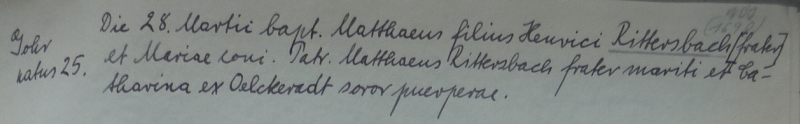 Die 28. Martii bapt. Matthaeus filius Henrici Rittersbach [frater]
et Mariae coni. Patr. Matthaeus Rittersbach frater mariti et Ca-
tharina ex Oelckeradt soror puerperae.
natus 25.